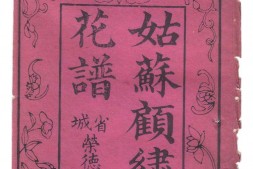 姑蘇顧繡
花譜
省城
榮德